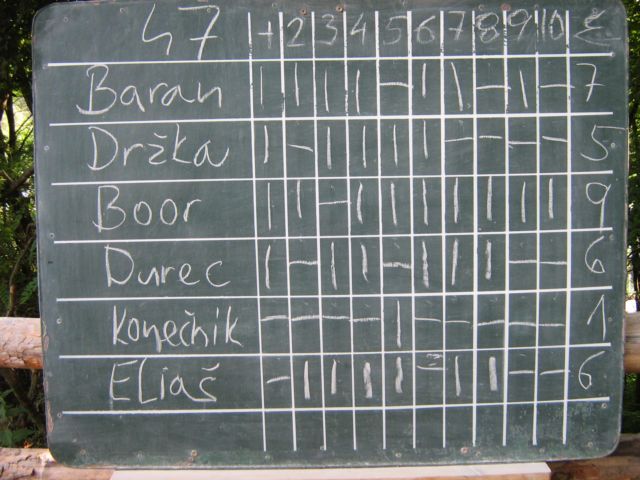 47 1 2 3 4 5 6 7 8 9 10 Σ
Baran | | | | — | | — | — 7
Držka | — | | | | — — — — 5
Boor | | — | | | | | | | 9
Durec | — | | — | | | — — 6
Konečník — — — — | — — — — — 1
Eliaš — | | | | — | | — — 6